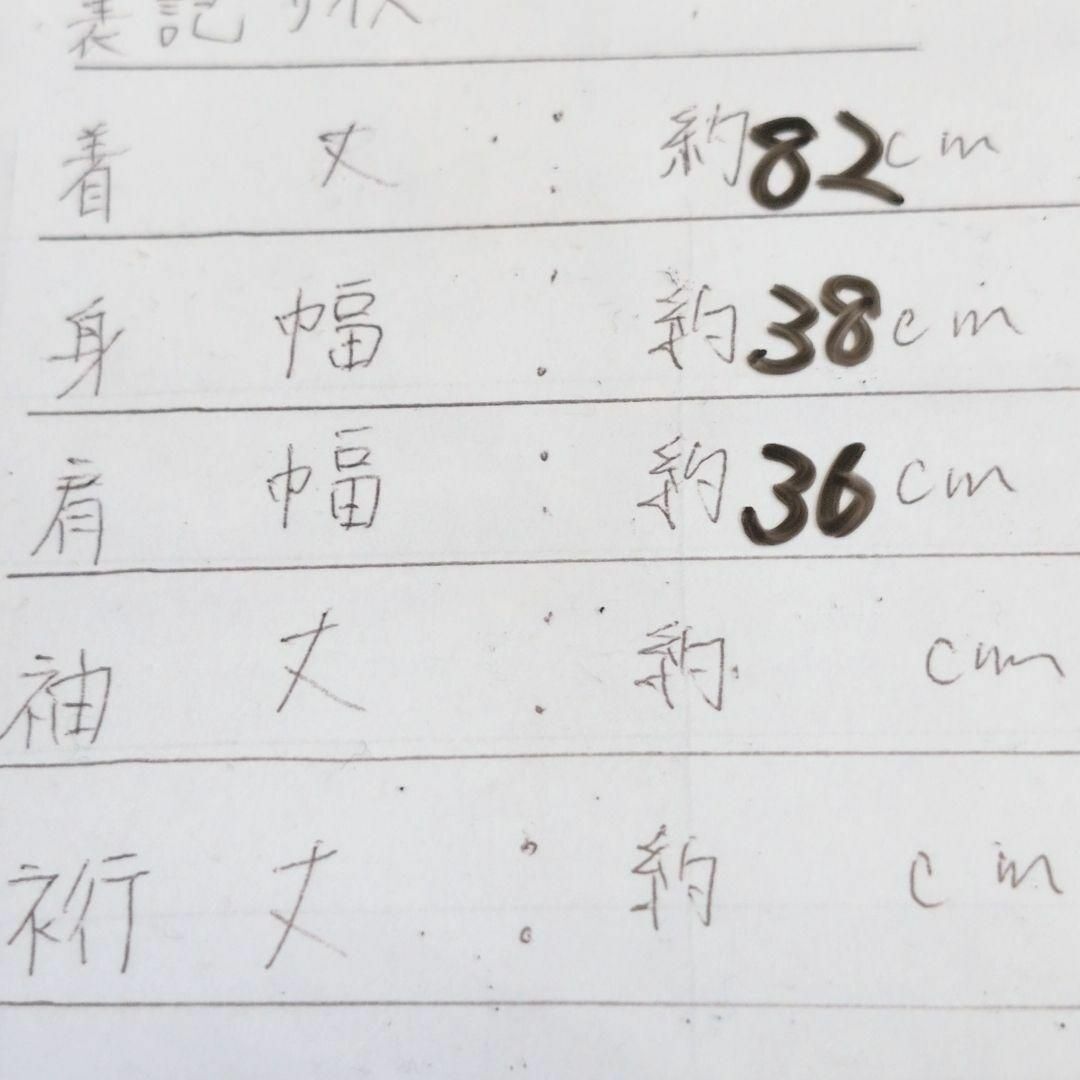 表記サイズ
着丈：約82cm
身幅：約38cm
肩幅：約36cm
袖丈：約　cm
裄丈：約　cm